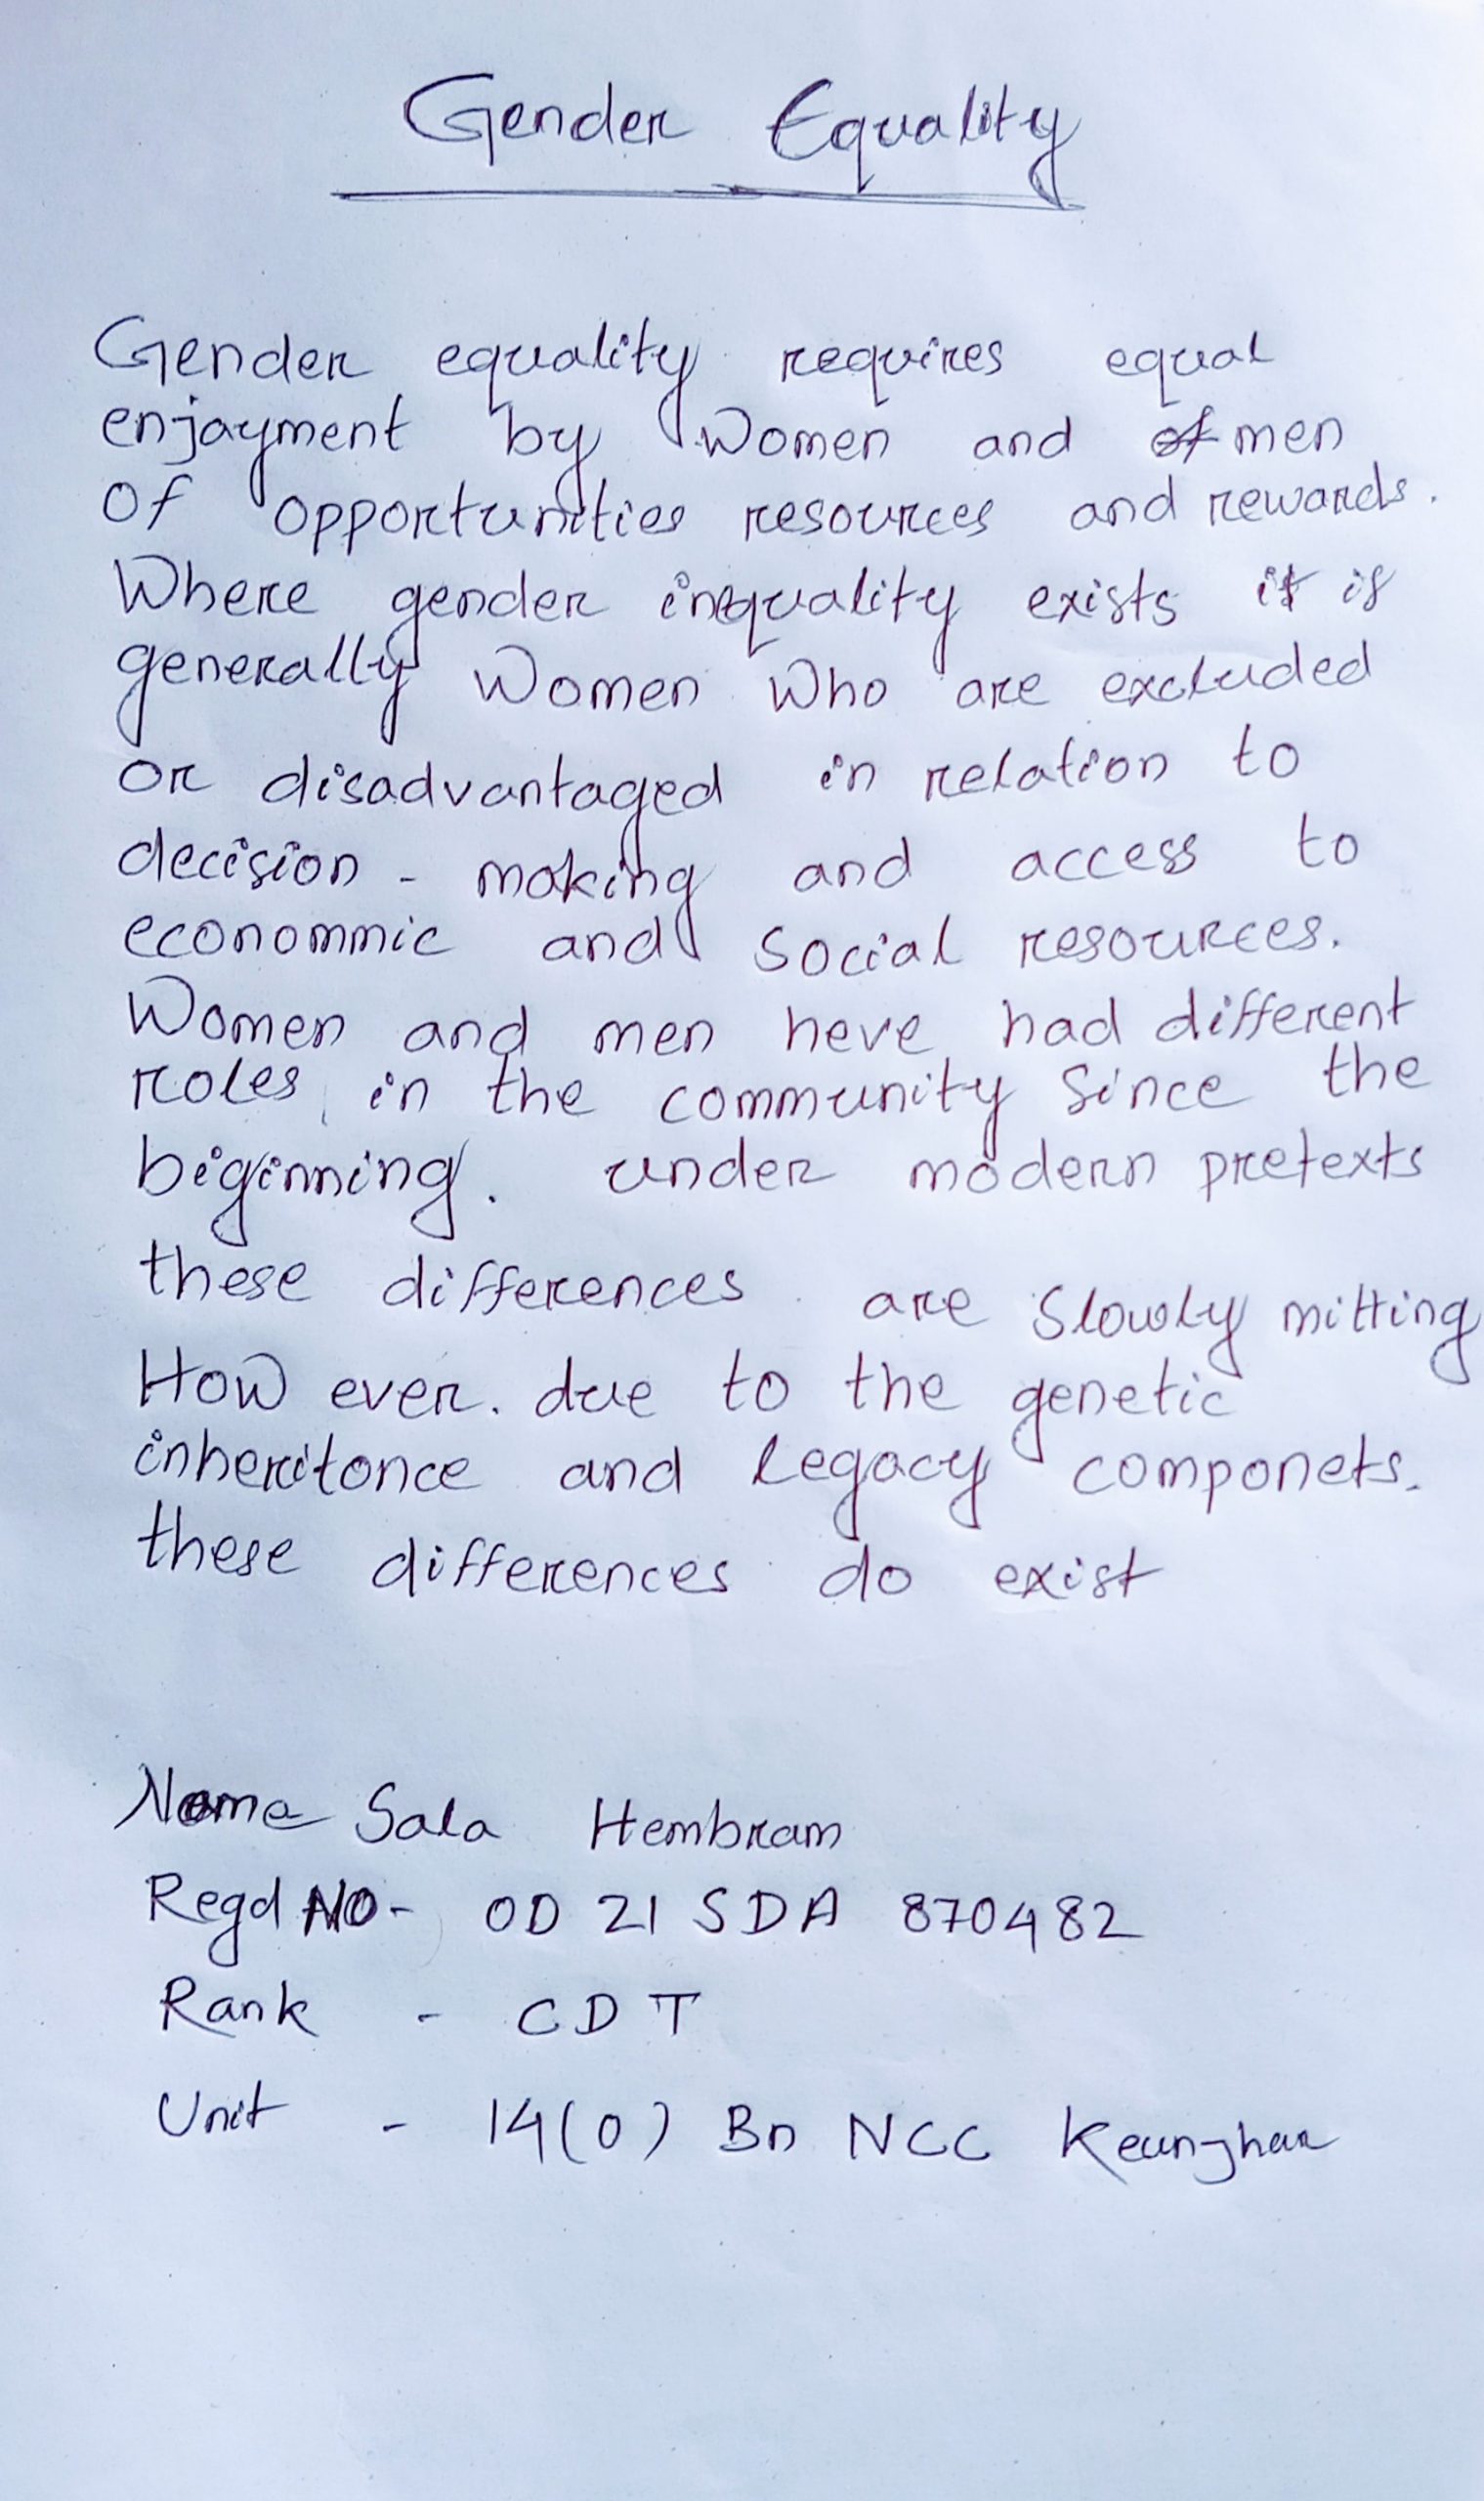 Gender Equality
Gender equality requires equal
enjayment by Women and of men
of opportunities resources and rewards.
Where gender inequality exists it is
generally Women who are excluded
or disadvantaged in relation to
decision - making and access to
econommic and social resources.
Women and men heve had different
roles in the community since the
biginning. under modern pretexts
these differences are slowly mitting
How ever. due to the genetic
inheritonce and legacy componets.
these differences do exist
Name Sala Hembram
Regd NO- OD 21 SDA 870482
Rank - CDT
Unit - 14(0) Bn NCC Keunjhar